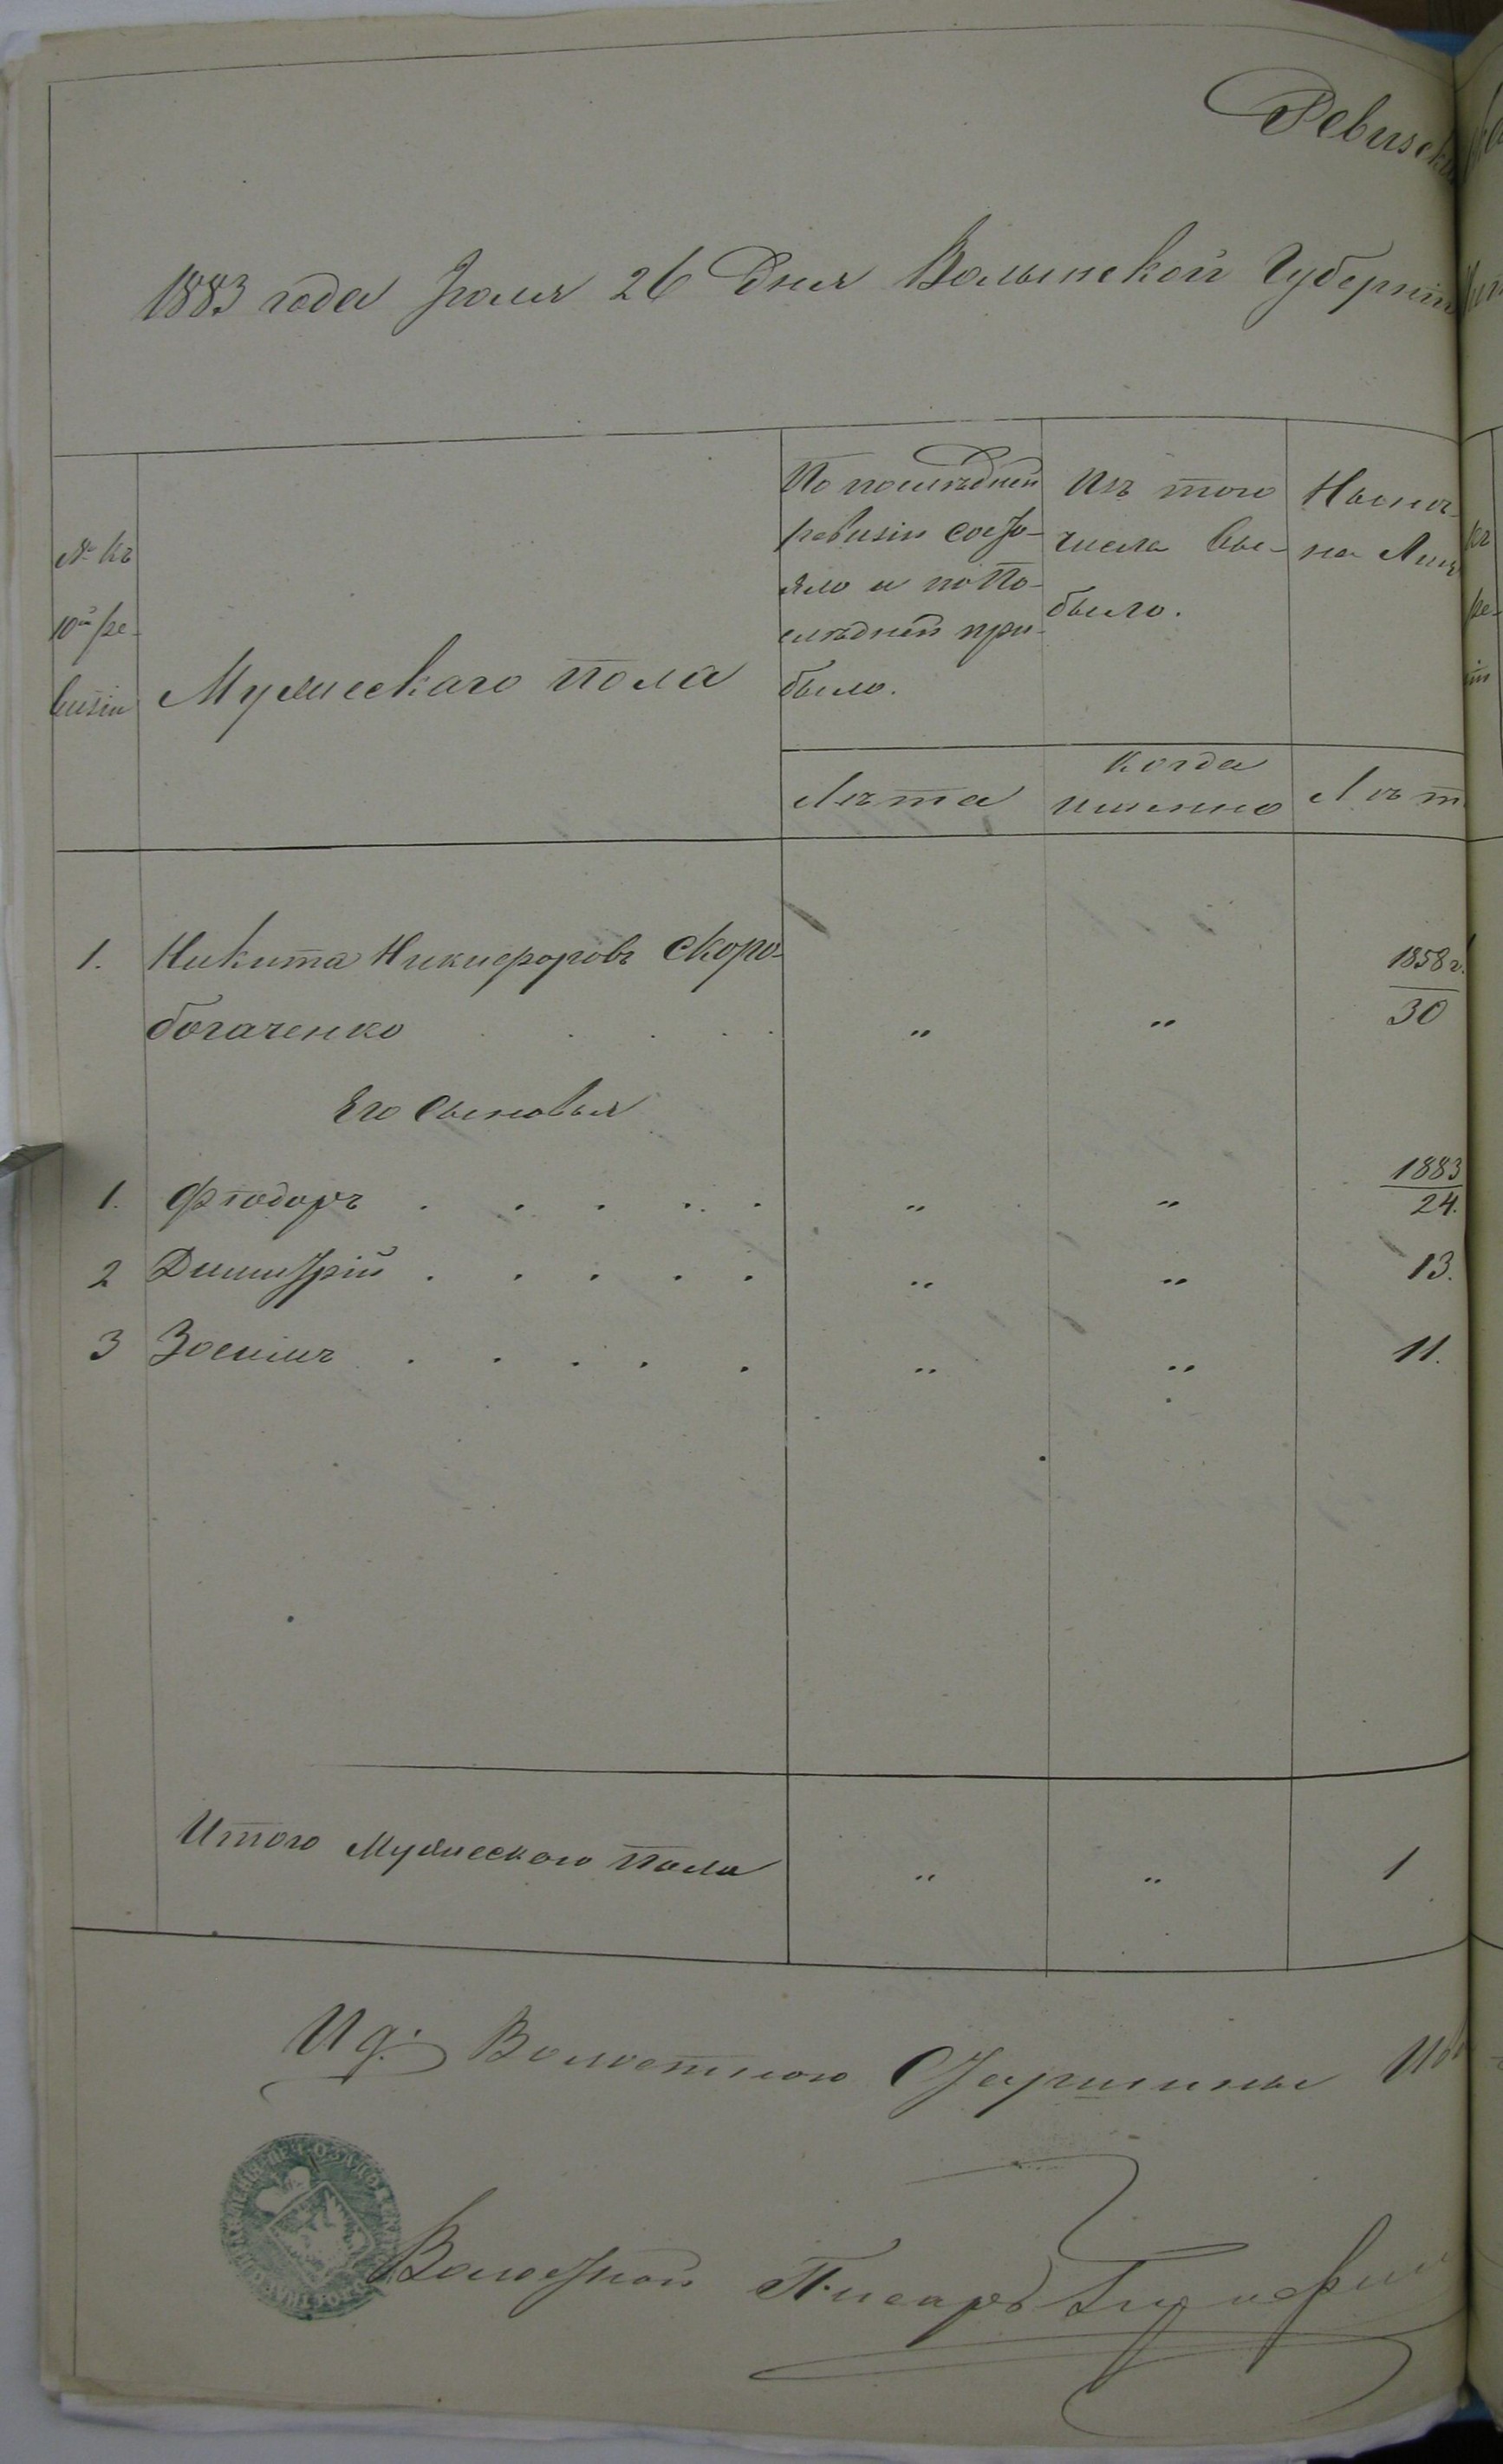 Ревизска
1883 года Іюля 26 Дня Волынской Губерніи
№ къ
10й ре-
визіи
Мужескаго пола
По послѣдней
ревизіи состо-
яло и по По-
слѣдней при-
было.
Лѣта
Изъ того
числа вы-
было.
Когда
именно
Нынѣ
на Лиц
Лѣт
1. Никита Никифоровъ Скоро- 1858 г.
богаченко . . . . „ „ 30
Его Сыновья
1883
1. Фіодоръ . . . . . „ „ 24.
2 Димитрій . . . . . „ „ 13.
3 Зосимъ . . . . . „ „ 11.
Итого Мужескаго Пола „ „ 1
И д. Волостного Старшины
Волостной Писарь